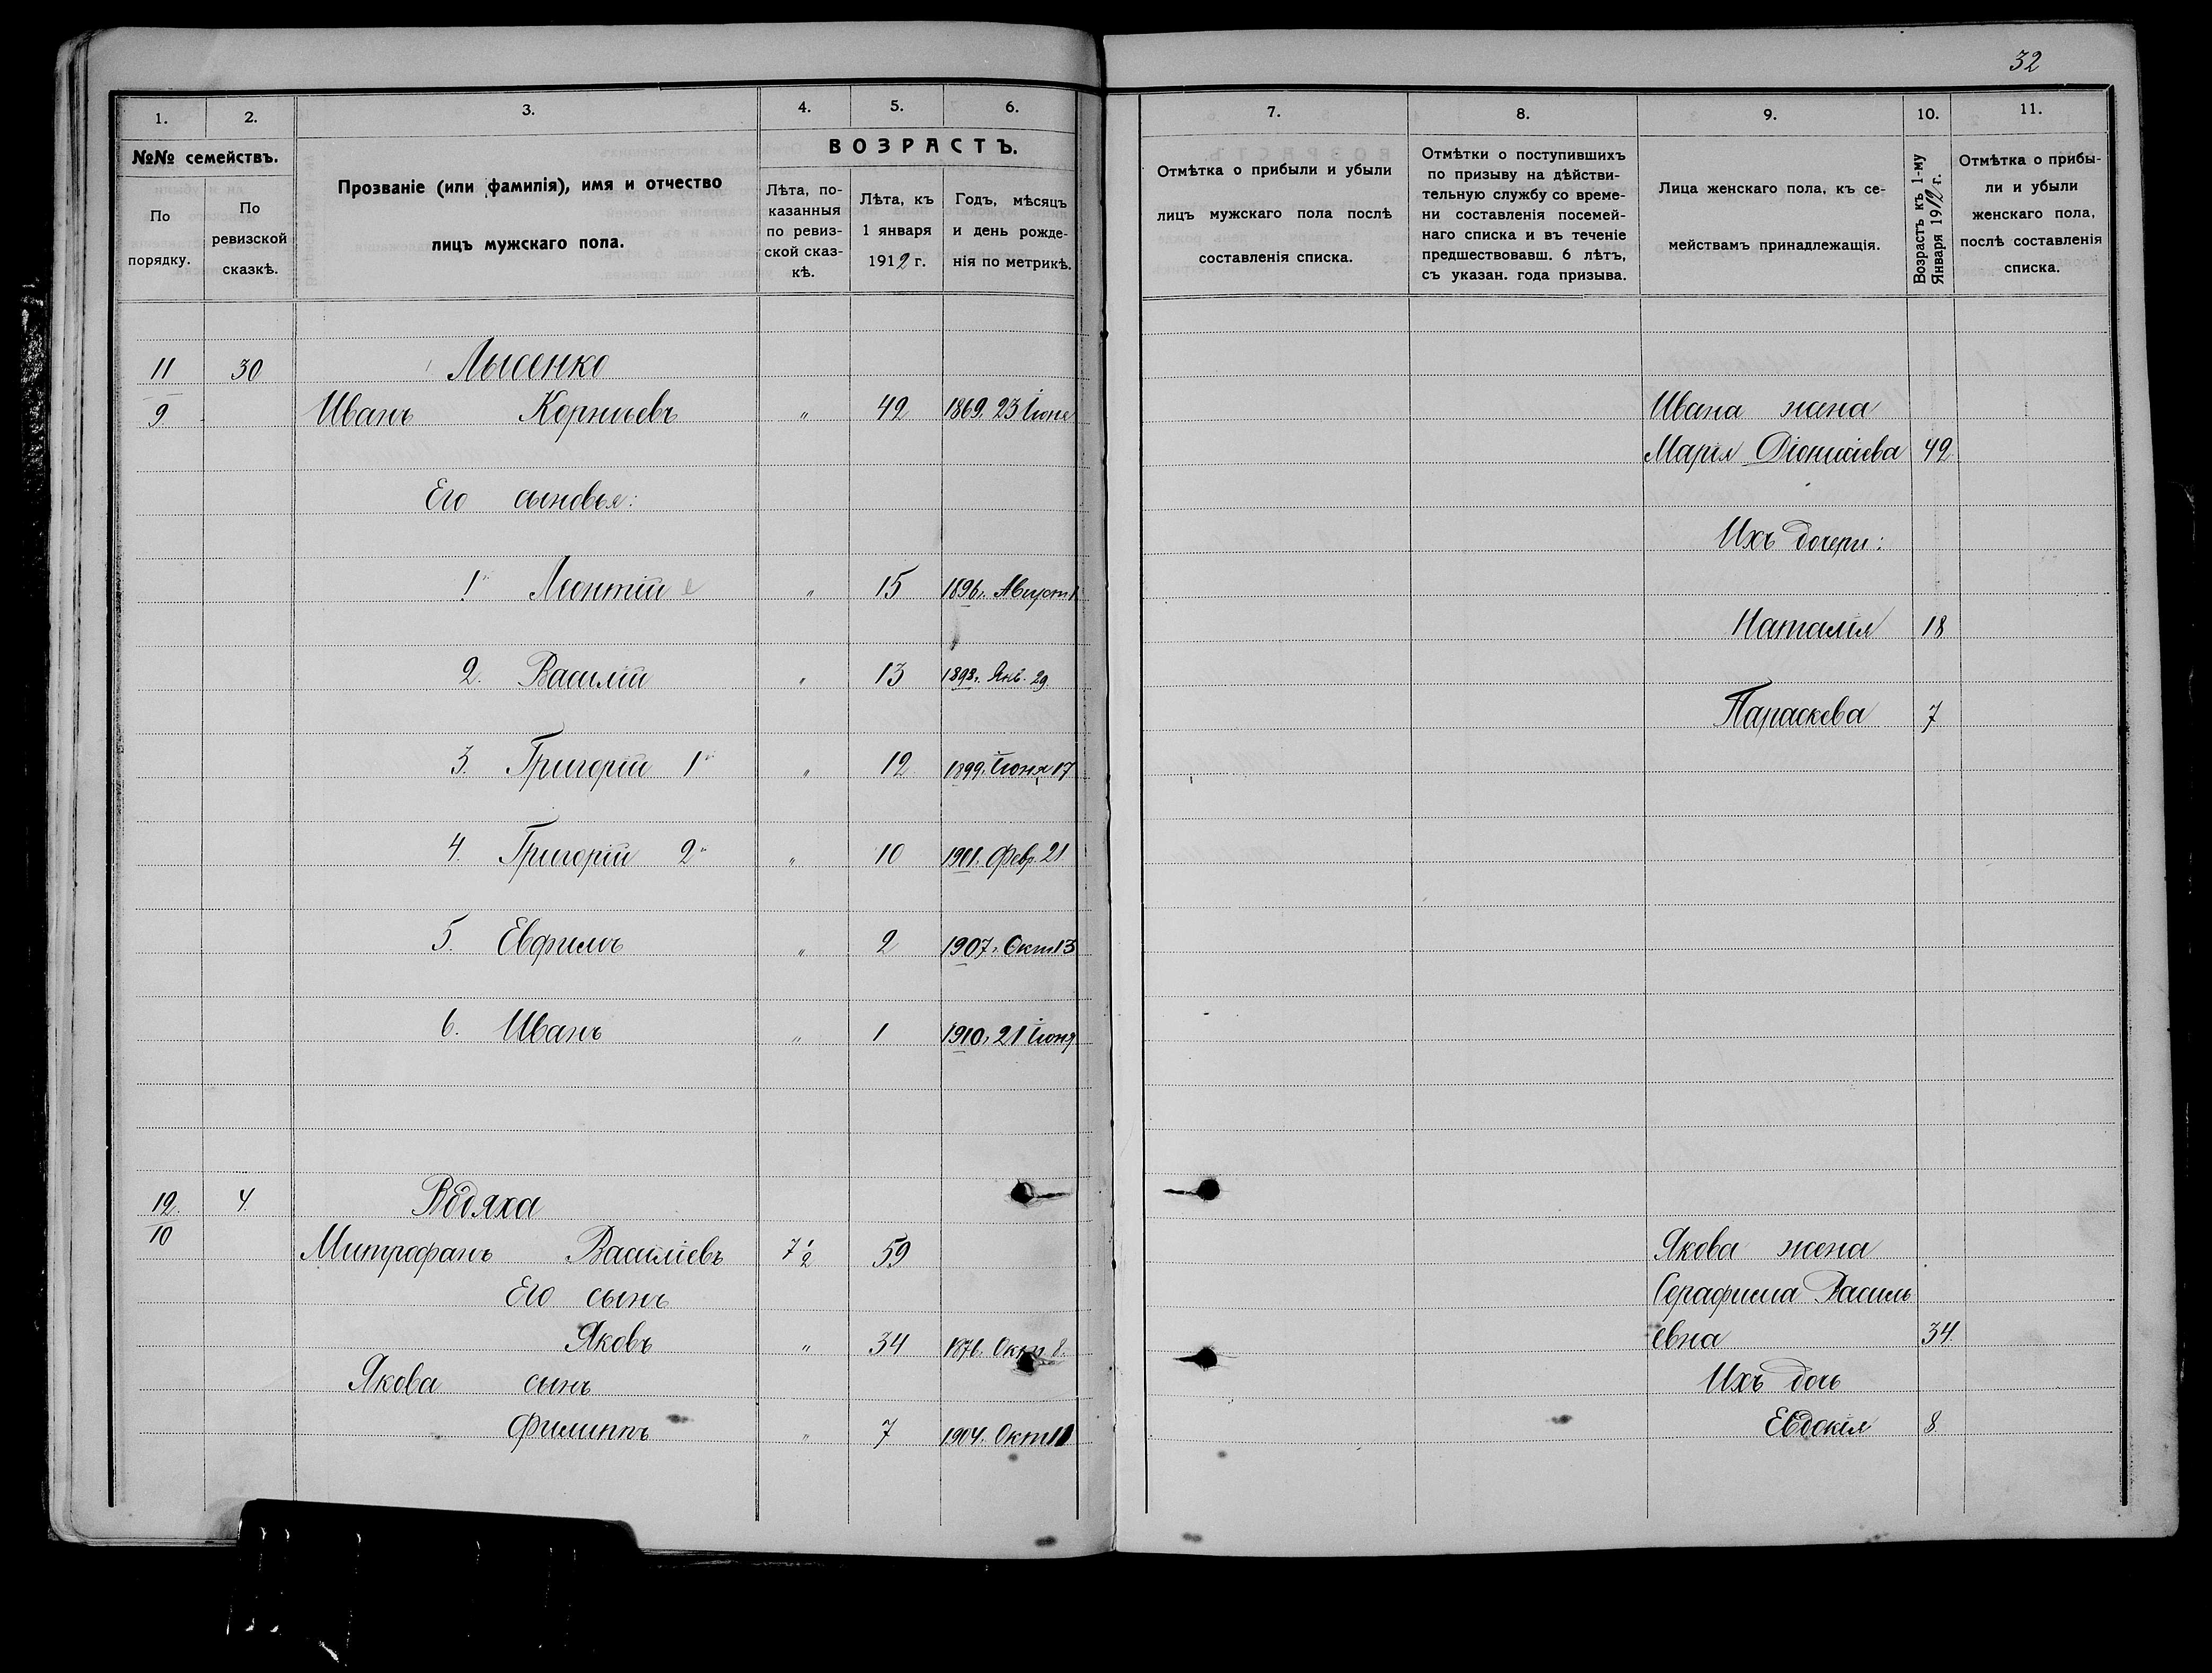 32
1. 2. 3. 4. 5. 6.
№№ семействъ.
По порядку.
По ревизской сказкѣ.
Прозваніе (или фамилія), имя и отчество
лицъ мужскаго пола.
ВОЗРАСТЪ.
Лѣта, по-
казанныя
по ревиз-
ской сказ-
кѣ.
Лѣта, къ
1 января
1912 г.
Годъ, мѣсяцъ
и день рожде-
нія по метрикѣ.
7. 8. 9. 10. 11.
Отмѣтка о прибыли и убыли
лицъ мужскаго пола послѣ
составленія списка.
Отмѣтки о поступившихъ
по призыву на дѣйстви-
тельную службу со време-
ни составленія посемей-
наго списка и въ теченіе
предшествовавш. 6 лѣтъ,
съ указан. года призыва.
Лица женскаго пола, къ се-
мействамъ принадлежащія.
Возрастъ къ 1-му
Января 1912 г.
Отмѣтка о прибы-
ли и убыли
женскаго пола,
послѣ составленія
списка.
11 30 Лысенко
9 Иванъ Корніевъ " 42 1869. 23 Іюня
Его сыновья:
1 Леонтій " 15 1896. Август 1
2. Василій " 13 1898. Янв. 29
3. Григорій 1й " 12 1899. Іюня 17
4. Григорій 2й " 10 1901. Февр. 21
5. Евфимъ " 2 1907. Окт 13
6. Иванъ " 1 1910. 21 Іюня
12. 4. Вдяха
10 Митрофанъ Василіевъ 7 1/2 59
Его сынъ
Яковъ " 34 1876. Окт 8.
Якова сынъ
Филиппъ " 7 1904. Окт
Ивана жена
Марія Діонисіева 42
Ихъ дочери:
Наталія 18
Параскева 7
Якова жена
Серафима Василь
евна 34.
Ихъ дочь
Евдокія 8